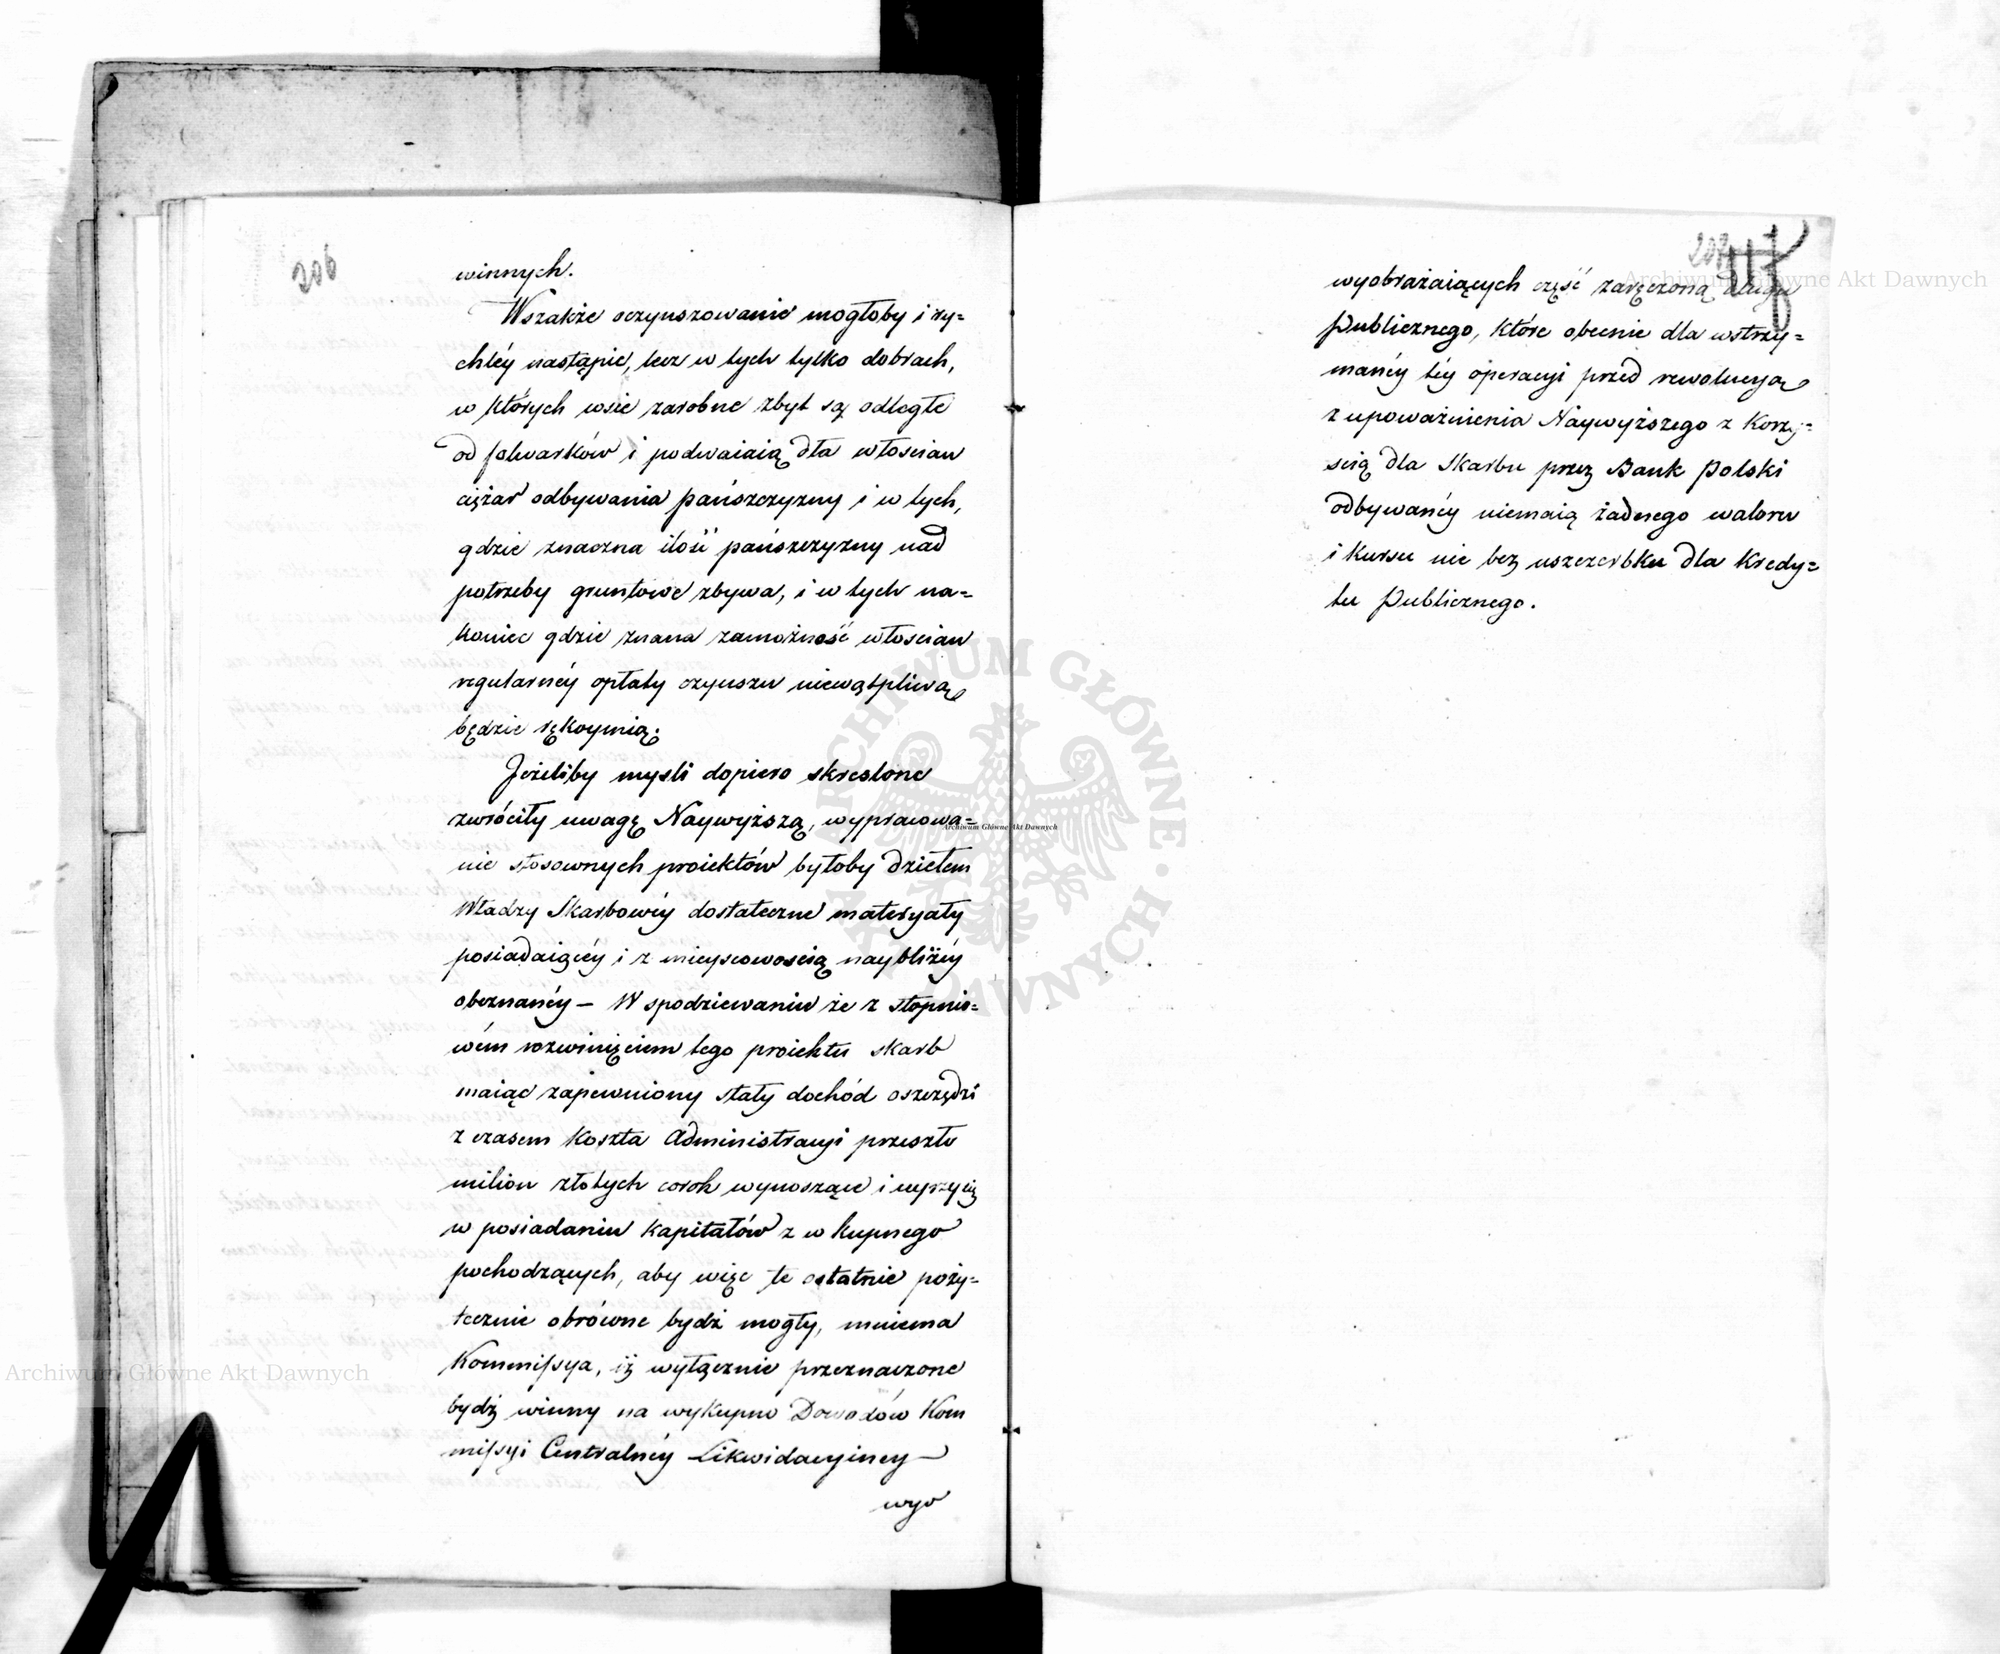 206
winnych.
Wszakże oczynszowanie mogłoby i ry=
chléy nastąpić, lecz w tych tylko dobrach,
w których wsie zarobne zbyt są odległe
od folwarków i podwaiaią dla włoscian
ciężar odbywania pańszczyzny i w tych,
gdzie znaczna ilość pańszczyzny nad
potrzeby gruntowe zbywa, i w tych na=
koniec gdzie znana zamożność włoscian
regularnéy opłaty czynszu niewątpliwą
będzie rękoymią.
Jeżeliby mysli dopiero skreslone
zwróciły uwagę Naywyższą, wypracowa=
nie stosownych proiektów byłoby dziełem
Władzy Skarbowéy dostateczne materyały
posiadaiącéy i z mieyscowoscią naybliżéy
obeznanéy — W spodziewaniu że z stopnio=
wém rozwinięciem tego proiektu skarb
maiąc zapewniony stały dochód oszczędzi
z czasem koszta Administracyi przeszło
milion złotych corok wynoszące i uyrzy się
w posiadaniu kapitałów z wkupnego
pochodzących, aby więc te ostatnie poży=
tecznie obrócone bydź mogły, mniema
Kommissya, iż wyłącznie przeznaczone
bydź winny na wykupno Dowodów Kom
missyi Centralnéy Likwidacyiney
wyo
wyobrażaiących część zaręczoną długu
Publicznego, które obecnie dla wstrzy=
manéy téy operacyi przed rewolucyą
z upoważnienia Naywyższego z korzy=
scią dla Skarbu przez Bank Polski
odbywanéy niemaią żadnego waloru
i kursu nie bez uszczerbku dla kredy=
tu Publicznego.
Archiwum Główne Akt Dawnych
Archiwum Główne Akt Dawnych
Archiwum Główne Akt Dawnych
ARCHIWUM GŁÓWNE AKT DAWNYCH